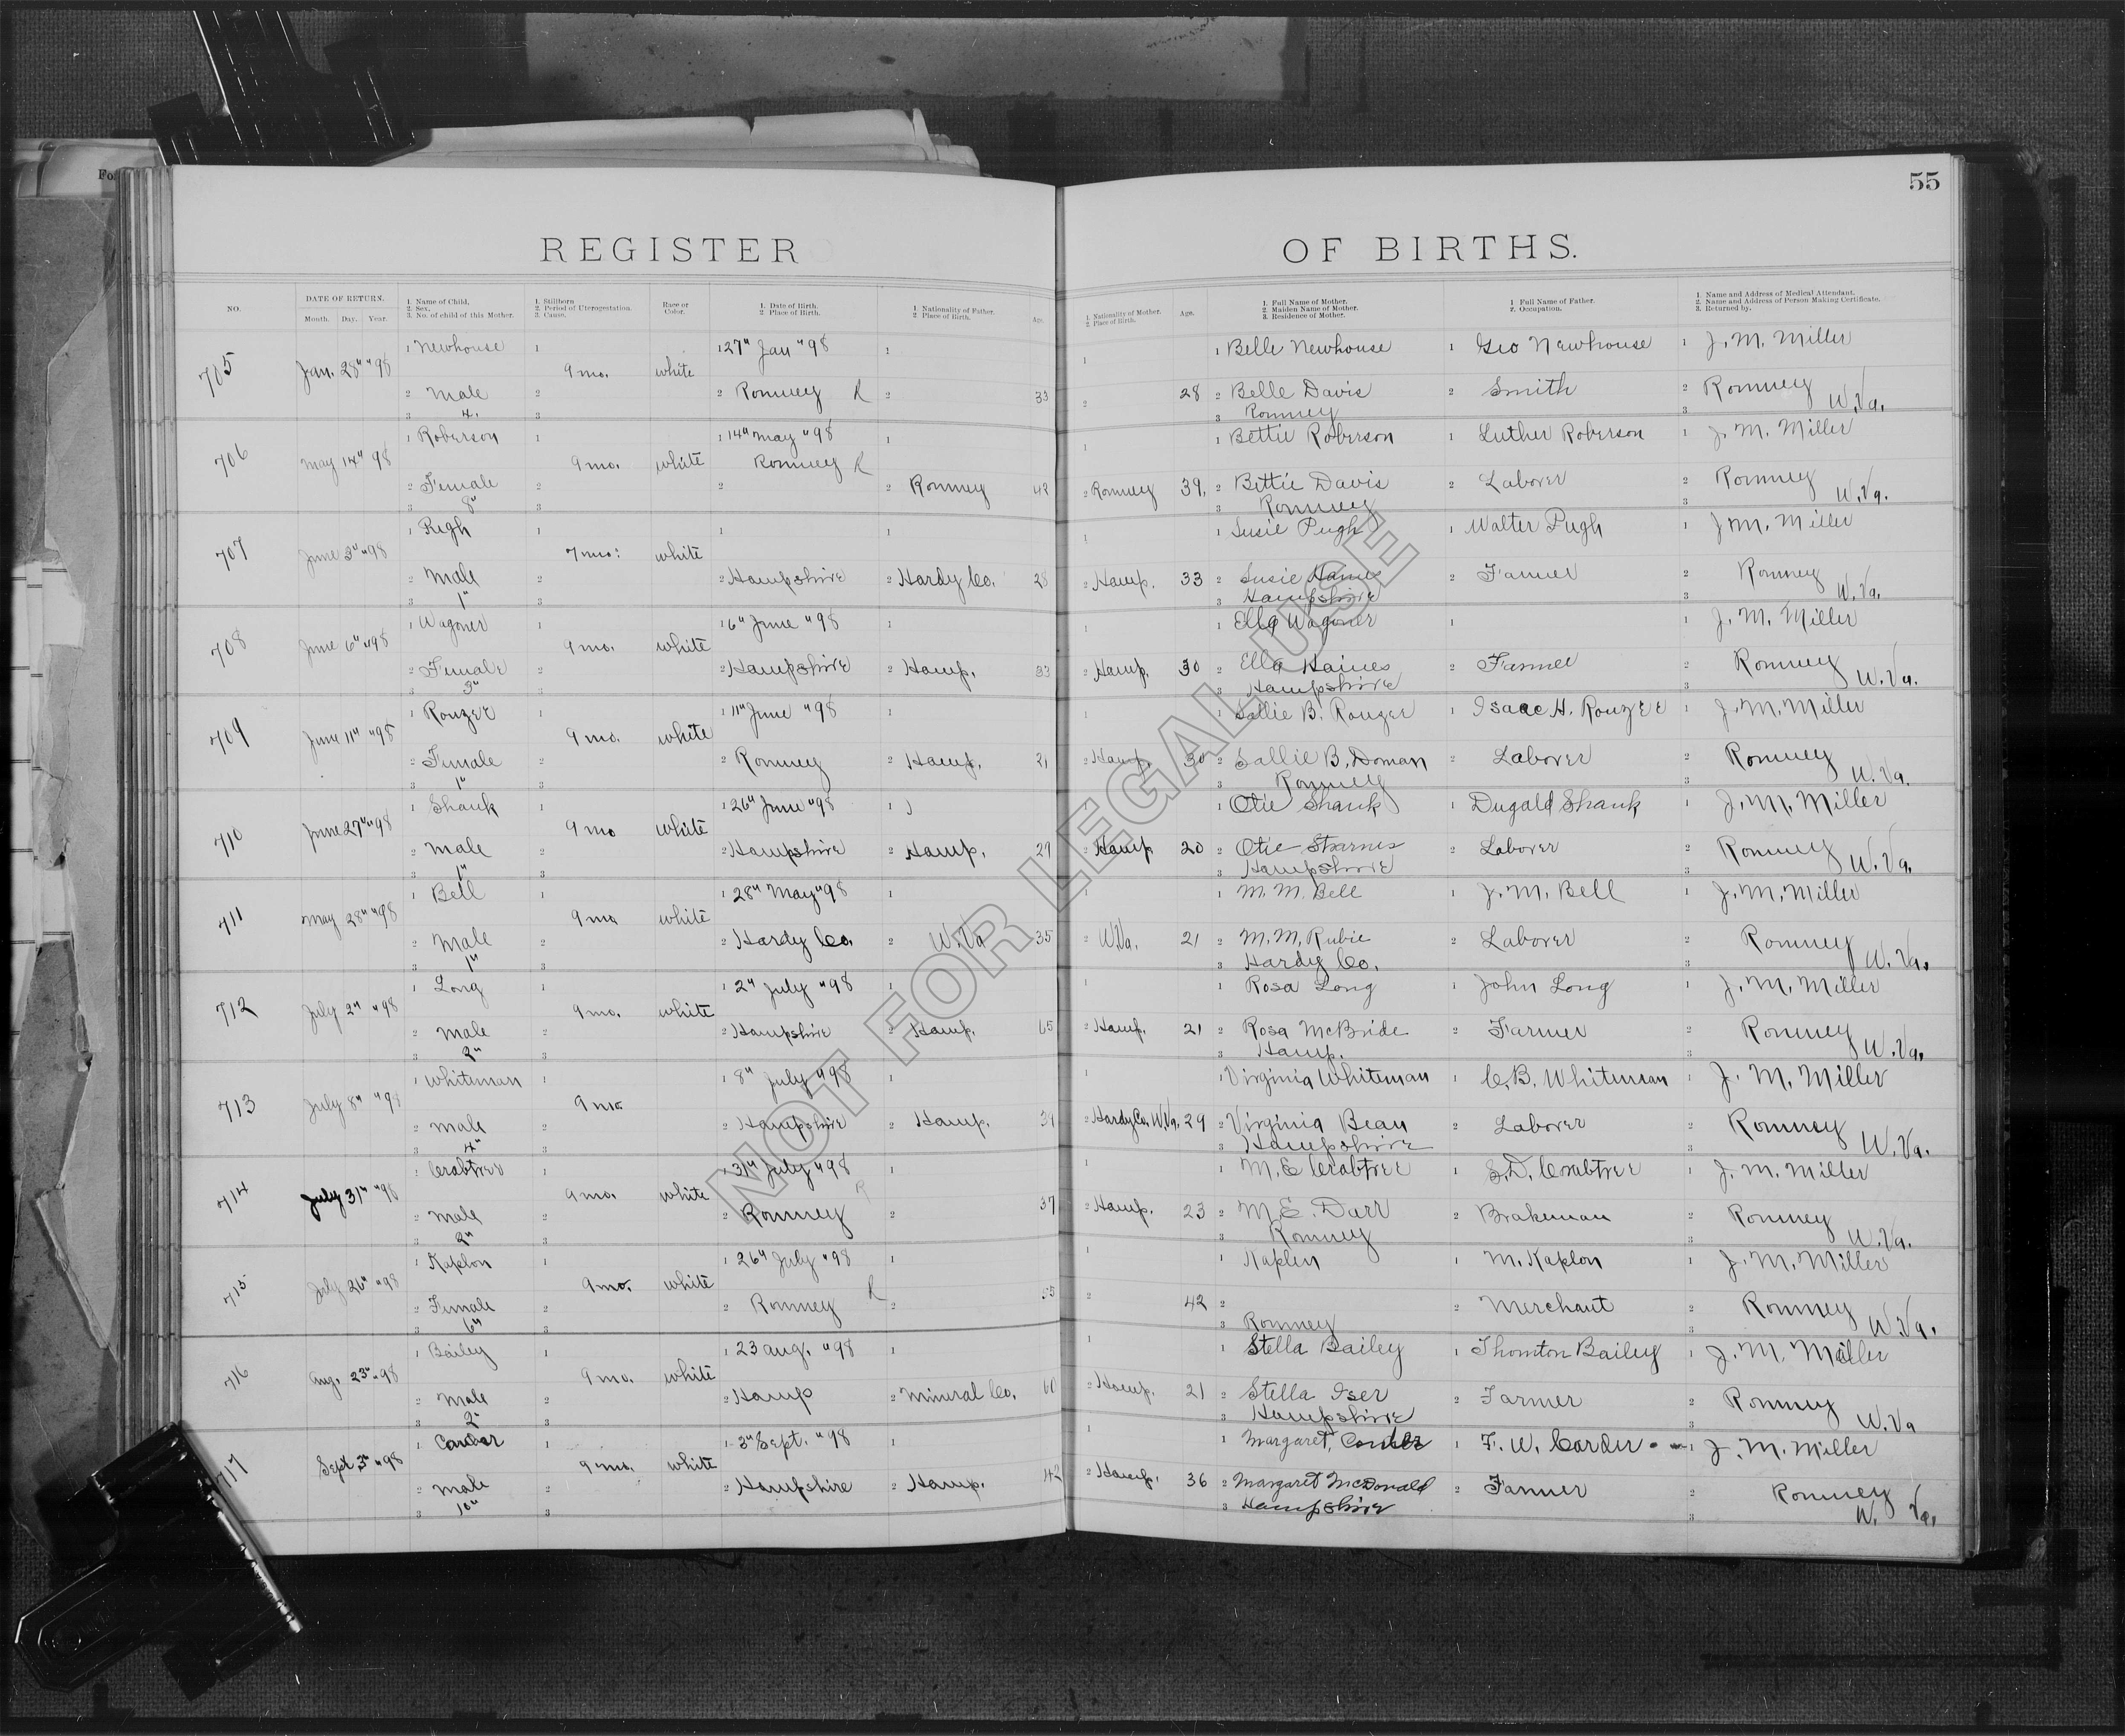 Fo
55
REGISTER OF BIRTHS.
NO.
DATE OF RETURN.
Month. Day. Year.
1. Name of Child.
2. Sex.
3. No. of child of this Mother.
1. Stillborn
2. Period of Uterogestation.
3. Cause.
Race or Color.
1. Date of Birth.
2. Place of Birth.
1. Nationality of Father.
2 Place of Birth.
Age.
1. Nationality of Mother.
2. Place of Birth.
Age.
1. Full Name of Mother.
2. Maiden Name of Mother.
3. Residence of Mother.
1. Full Name of Father.
2. Occupation.
1. Name and Address of Medical Attendant.
2. Name and Address of Person Making Certificate.
3. Returned by.
705 Jan. 28" "98 1 Newhouse 1 9 mo. white 1 27" Jan "98 1 1 1 Belle Newhouse 1 Geo Newhouse 1 J. M. Miller
2 Male 2 2 Romney R 2 33 2 28 2 Belle Davis 2 Smith 2 Romney W.Va.
3 4. 3 3 Romney 3
706 May 14" 98 1 Roberson 1 9 mo. white 1 14" May "98 1 1 1 Bettie Roberson 1 Luther Roberson 1 J. M. Miller
Romney R
2 Female 2 2 2 Romney 42 2 Romney 39. 2 Bettie Davis 2 Laborer 2 Romney W.Va.
3 8" 3 3 Romney 3
707 June 3" "98 1 Pugh 1 7 mo: white 1 1 1 1 Susie Pugh 1 Walter Pugh 1 J M. Miller
2 Male 2 2 Hampshire 2 Hardy Co. 28 2 Hamp. 33 2 Susie Haines 2 Farmer 2 Romney W.Va.
3 1" 3 3 Hampshire 3
708 June 6" "98 1 Wagoner 1 9 mo. white 1 6" June "98 1 1 1 Ella Wagoner 1 1 J. M. Miller
2 Female 2 2 Hampshire 2 Hamp. 33 2 Hamp. 30 2 Ella Haines 2 Farmer 2 Romney W.Va.
3 3" 3 3 Hampshire 3
709 June 11" "98 1 Rouzee 1 9 mo. white 1 11" June "98 1 1 1 Sallie B. Rouzer 1 Isaac H. Rouzee 1 J. M. Miller
2 Female 2 2 Romney 2 Hamp. 21 2 Hamp. 30 2 Sallie B. Doman 2 Laborer 2 Romney W.Va.
3 1" 3 3 Romney 3
710 June 27" "98 1 Shank 1 9 mo white 1 26" June "98 1 1 1 Otie Shank 1 Dugald Shank 1 J. M. Miller
2 Male 2 2 Hampshire 2 Hamp. 29 2 Hamp 20 2 Otie Starnes 2 Laborer 2 Romney W.Va.
3 1" 3 3 Hampshire 3
711 May 28" "98 1 Bell 1 9 mo white 1 28" May "98 1 1 1 M. M. Bell 1 J. M. Bell 1 J. M. Miller
2 Male 2 2 Hardy Co. 2 W.Va 35 2 W.Va. 21 2 M. M. Rubie 2 Laborer 2 Romney W.Va.
3 1" 3 3 Hardy Co. 3
712 July 2" "98 1 Long 1 9 mo. white 1 2" July "98 1 1 1 Rosa Long 1 John Long 1 J. M. Miller
2 Male 2 2 Hampshire 2 Hamp. 65 2 Hamp. 21 2 Rosa McBride 2 Farmer 2 Romney W.Va.
3 2" 3 3 Hamp. 3
713 July 8" "98 1 Whiteman 1 9 mo. 1 8" July "98 1 1 1 Virginia Whiteman 1 C. B. Whiteman 1 J. M. Miller
2 Male 2 2 Hampshire 2 Hamp. 39 2 Hardy Co. W.Va. 29 2 Virginia Bean 2 Laborer 2 Romney W.Va.
3 4" 3 3 Hampshire 3
714 July 31" "98 1 Crabtree 1 9 mo. white 1 31" July "98 1 1 1 M. E Crabtree 1 S. D. Crabtree 1 J. M. Miller
2 Male 2 2 Romney R 2 37 2 Hamp. 23 2 M. E. Darr 2 Brakeman 2 Romney W.Va.
3 2" 3 3 Romney 3
715 July 26" "98 1 Kaplon 1 9 mo. white 1 26" July "98 1 1 1 Kaplin 1 M. Kaplon 1 J. M. Miller
2 Female 2 2 Romney R 2 55 2 42 2 2 Merchant 2 Romney W.Va.
3 6" 3 3 Romney 3
716 Aug. 23" "98 1 Bailey 1 9 mo. white 1 23 Aug. "98 1 1 1 Stella Bailey 1 Thornton Bailey 1 J. M. Miller
2 Male 2 2 Hamp 2 Mineral Co. 60 2 Hamp. 21 2 Stella Iser 2 Farmer 2 Romney W.Va
3 2" 3 3 Hampshire 3
717 Sept 3" "98 1 Carder 1 9 mo. white 1 3" Sept. "98 1 1 1 Margaret Carder 1 F. W. Carder 1 J. M. Miller
2 Male 2 2 Hampshire 2 Hamp. 42 2 Hamp. 36 2 Margaret McDonald 2 Farmer 2 Romney W. Va.
3 10" 3 3 Hampshire 3
NOT FOR LEGAL USE